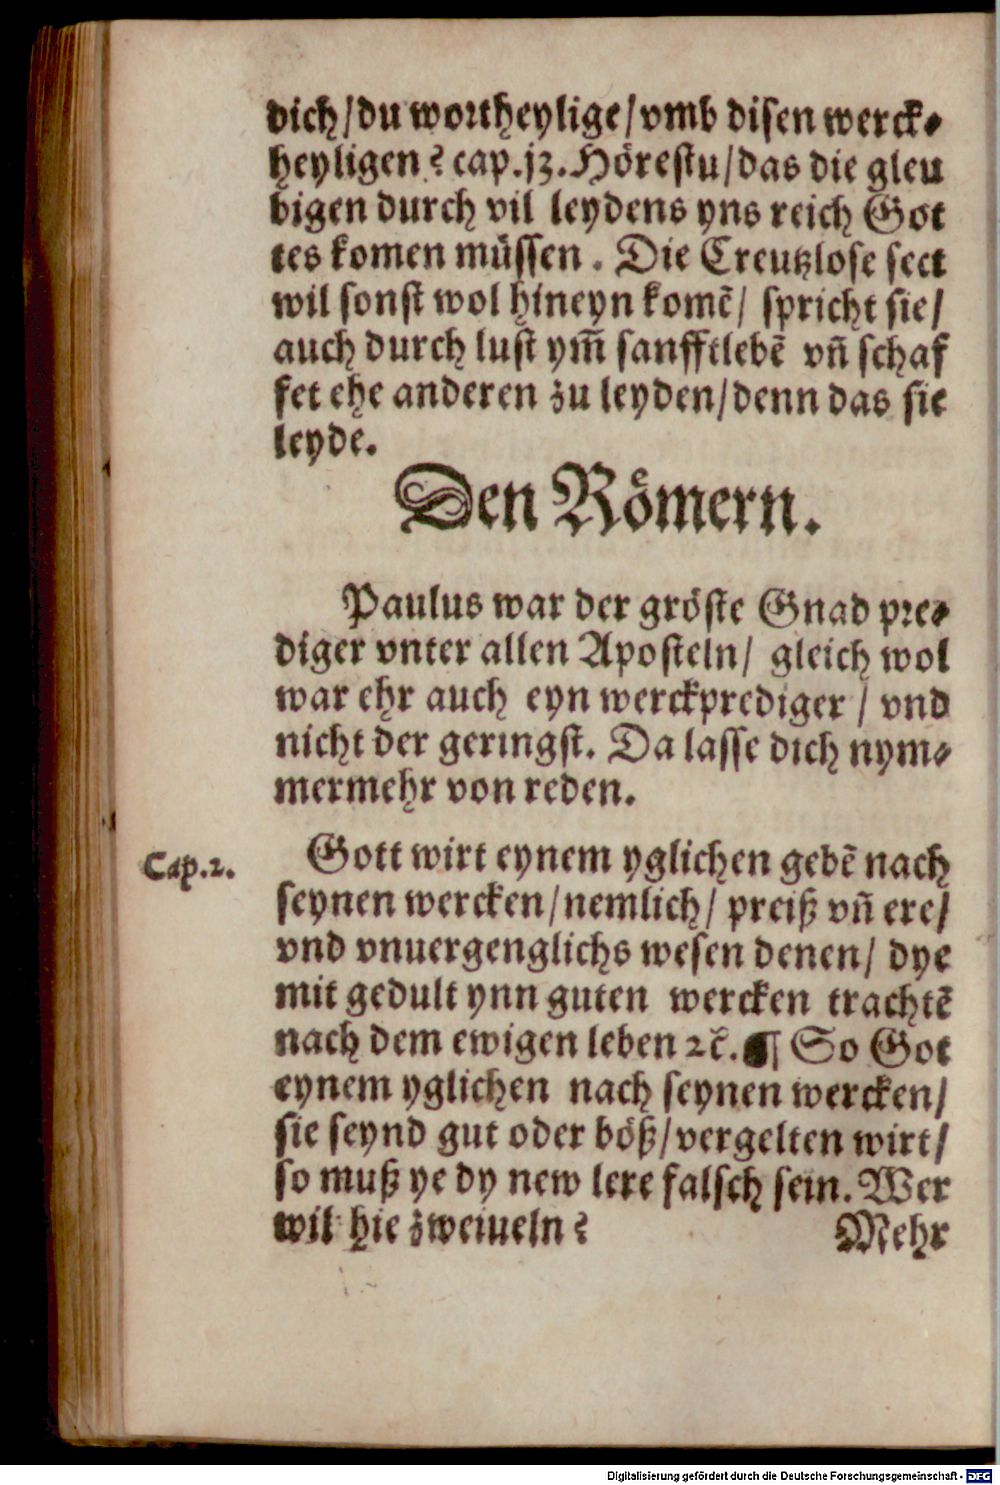 dich/du wortheylige/vmb disen werck⸗
heyligen? cap.jz. Hörestu/das die gleu
bigen durch vil leydens yns reich Got
tes komen müssen. Die Creutzlose sect
wil sonst wol hineyn komẽ/ spricht sie/
auch durch lust ym̃ sanfftlebẽ vñ schaf
fet ehe anderen zu leyden/denn das sie
leyde.
Den Römern.
Paulus war der gröste Gnad pre⸗
diger vnter allen Aposteln/ gleich wol
war ehr auch eyn werckprediger/ vnd
nicht der geringst. Da lasse dich nym⸗
mermehr von reden.
Cap.2.
Gott wirt eynem yglichen gebẽ nach
seynen wercken/nemlich/ preiß vñ ere/
vnd vnuergenglichs wesen denen/ dye
mit gedult ynn guten wercken trachtẽ
nach dem ewigen leben ⁊c̃.¶ So Got
eynem yglichen nach seynen wercken/
sie seynd gut oder böß/vergelten wirt/
so muß ye dy new lere falsch sein. Wer
wil hie zweiueln?
Mehr
Digitalisierung gefördert durch die Deutsche Forschungsgemeinschaft - DFG